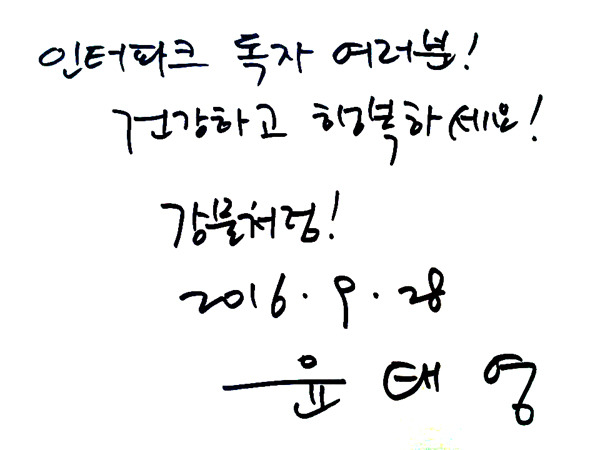 인터파크 독자 여러분!
건강하고 행복하세요!
강물처럼!
2016. 9. 28
윤태영